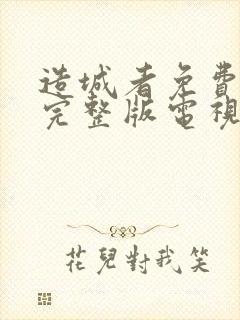 造城者免費
完整版電視
花兒對我笑